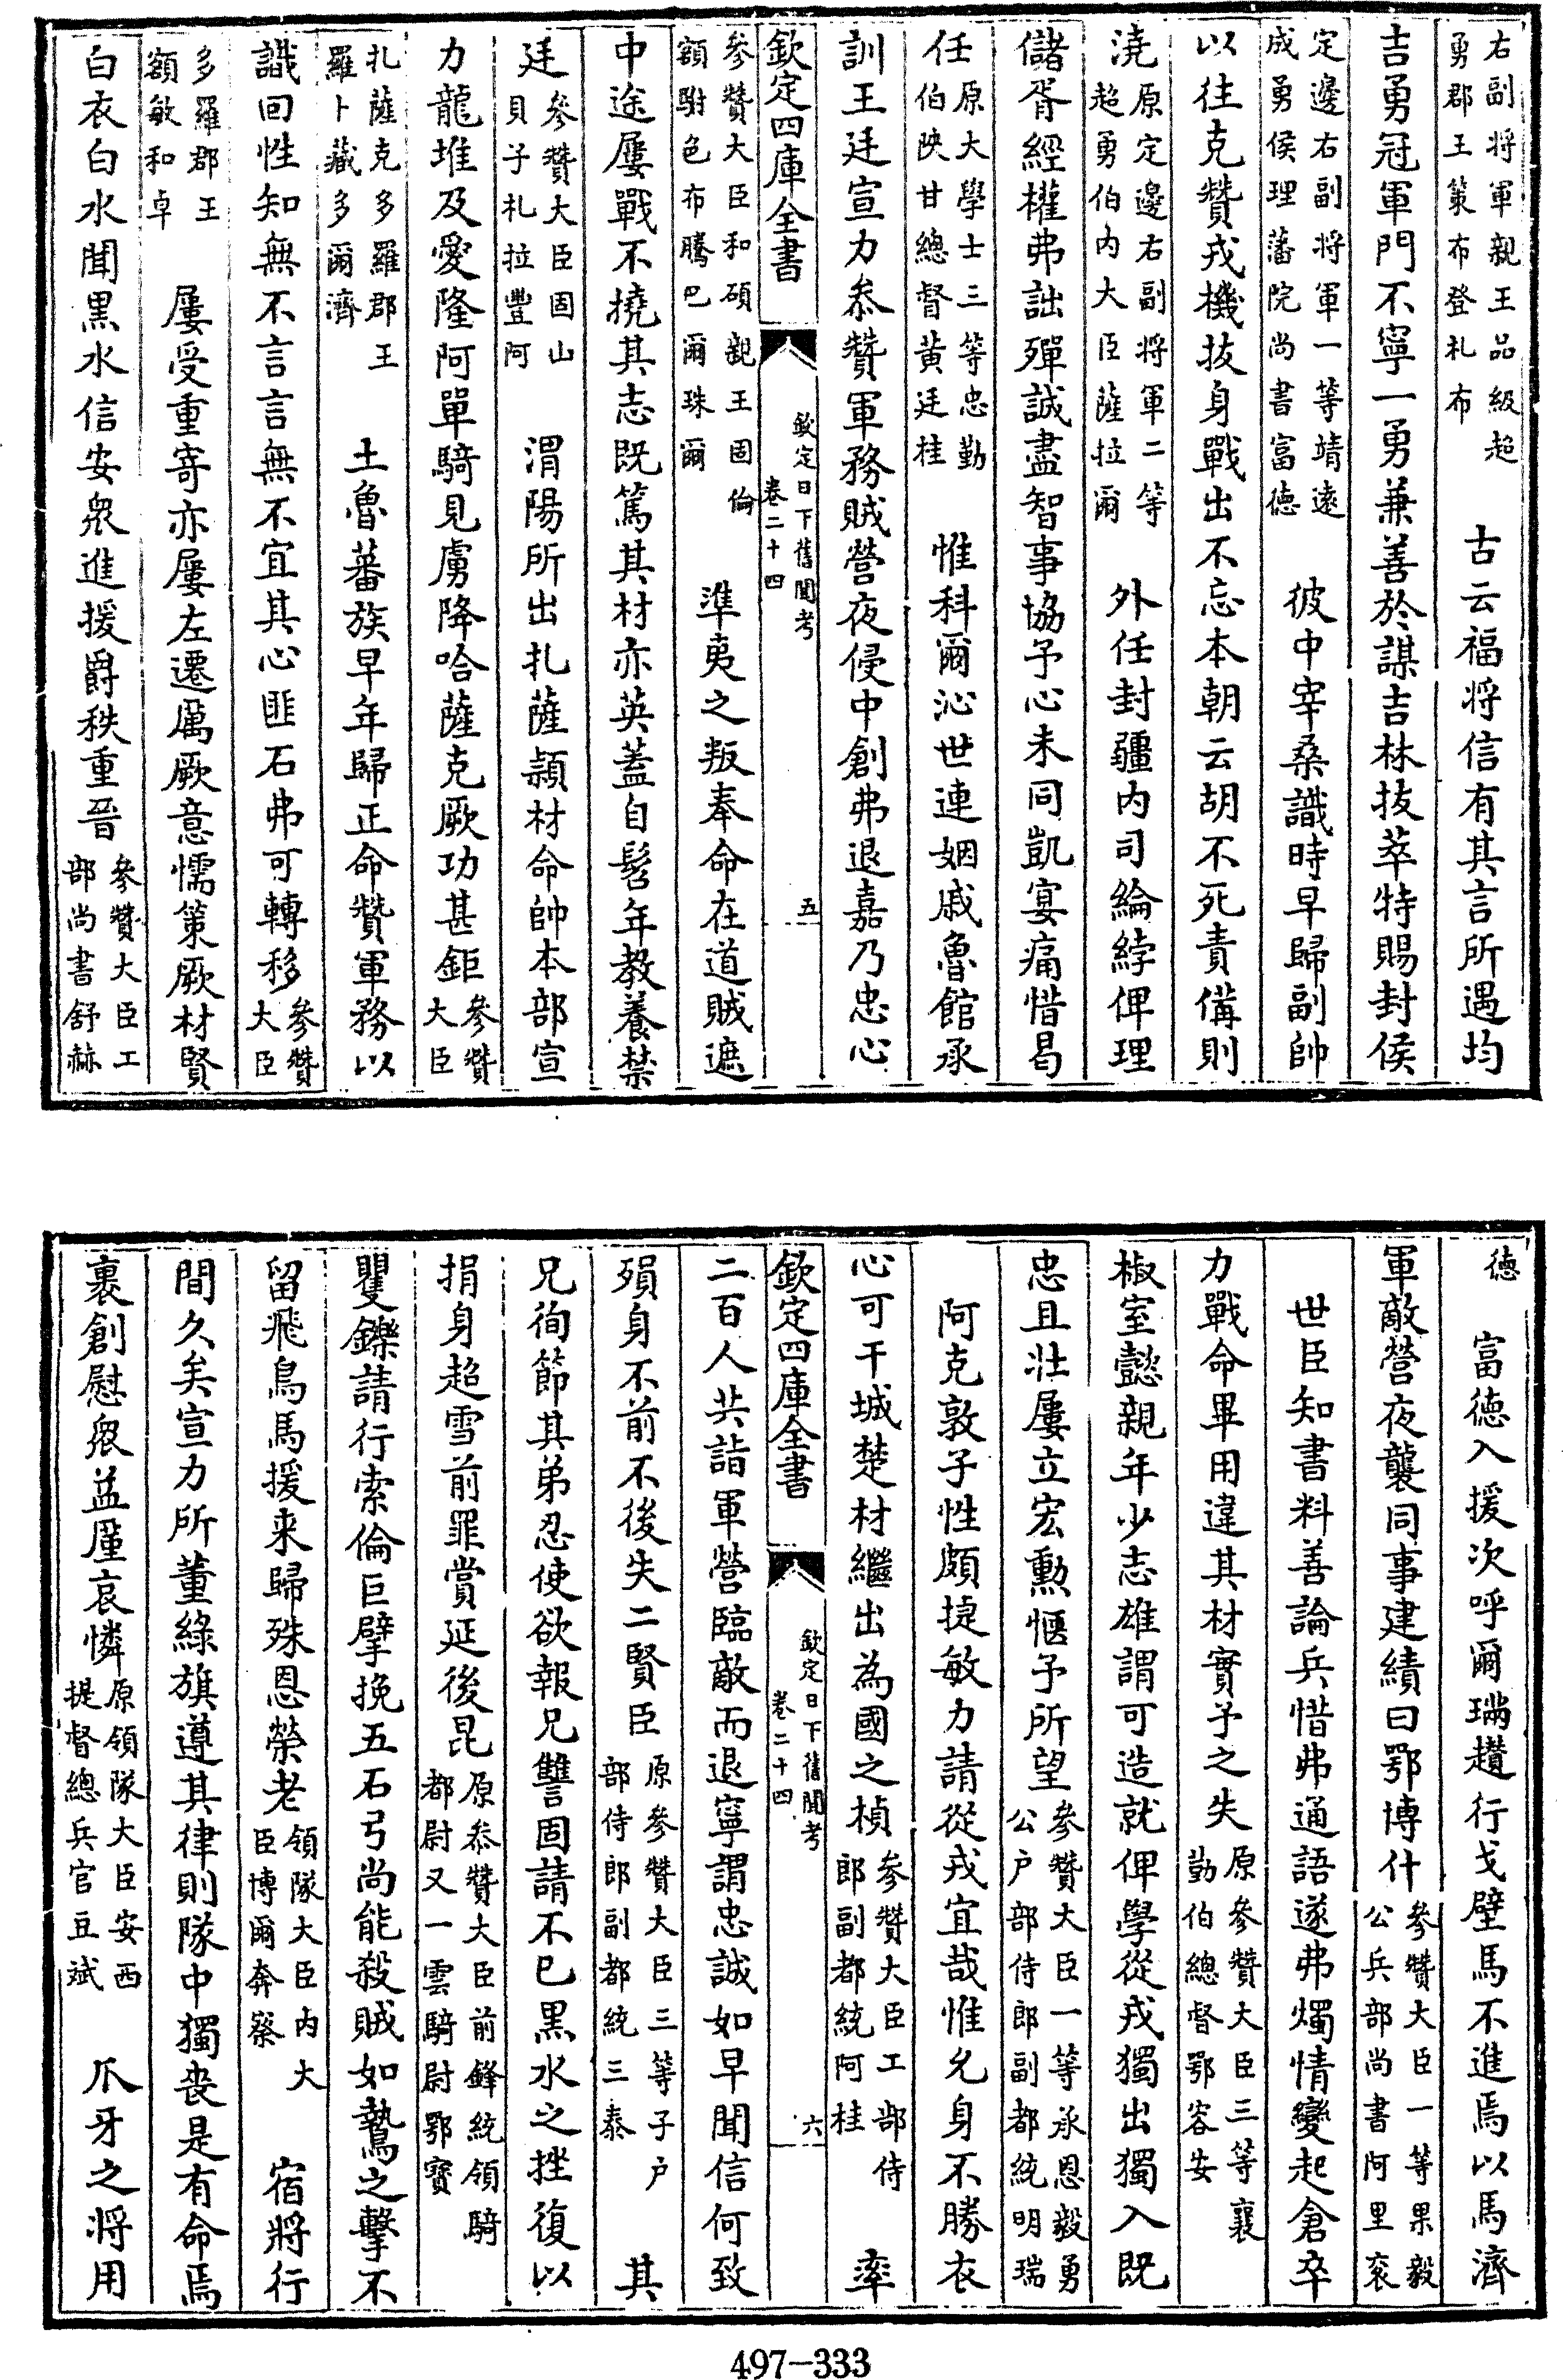 右副将軍親王品級超
勇郡王策布登札布
古云福将信有其言所遇均
吉勇冠軍門不寧一勇兼善於謀吉林抜萃特賜封侯
定邊右副将軍一等靖遠
成勇侯理藩院尚書富德
彼中宰桑識時早歸副帥
以往克贊戎機抜身戰出不忘本朝云胡不死責備則
澆
原定邊右副将軍二等
超勇伯内大臣薩拉爾
外任封疆内司綸綍俾理
儲胥經權弗詘殫誠盡智事協予心未同凱宴痛惜曷
任
原大學士三等忠勤
伯陜甘總督黄廷桂
惟科爾沁世連姻戚魯館承
訓王廷宣力叅贊軍務賊營夜侵中創弗退嘉乃忠心
欽定四庫全書
欽定日下舊聞考
卷二十四
五
參贊大臣和碩親王固倫
額駙色布騰巴爾珠爾
準夷之叛奉命在道賊遮
中途屢戰不撓其志既篤其材亦英蓋自髫年教養禁
廷
參贊大臣固山
貝子札拉豐阿
渭陽所出扎薩頴材命帥本部宣
力龍堆及愛隆阿單騎見虜降哈薩克厥功甚鉅
參贊
大臣
扎薩克多羅郡王
羅卜藏多爾濟
土魯蕃族早年歸正命贊軍務以
識回性知無不言言無不宜其心匪石弗可轉移
參贊
大臣
多羅郡王
額敏和卓
屢受重寄亦屢左遷厲厥意懦策厥材賢
白衣白水聞黒水信安衆進援爵秩重晉
參贊大臣工
部尚書舒赫
德
富德入援次呼爾瑞趲行戈壁馬不進焉以馬濟
軍敵營夜襲同事建績曰鄂博什
參贊大臣一等果毅
公兵部尚書阿里衮
世臣知書料善論兵惜弗通語遂弗燭情變起倉卒
力戰命畢用違其材實予之失
原參贊大臣三等襄
勤伯總督鄂容安
椒室懿親年少志雄謂可造就俾學從戎獨出獨入既
忠且壯屢立宏勲愜予所望
參贊大臣一等承恩毅勇
公户部侍郎副都統明瑞
阿克敦子性頗捷敏力請從戎宜哉惟允身不勝衣
心可干城楚材繼出為國之楨
參贊大臣工部侍
郎副都統阿桂
率
欽定四庫全書
欽定日下舊聞考
卷二十四
六
二百人共詣軍營臨敵而退寧謂忠誠如早聞信何致
殞身不前不後失二賢臣
原參贊大臣三等子户
部侍郎副都統三泰
其
兄徇節其弟忍使欲報兄讐固請不已黒水之挫復以
捐身超雪前罪賞延後昆
原叅贊大臣前鋒統領騎
都尉又一雲騎尉鄂寳
矍鑠請行索倫巨擘挽五石弓尚能殺賊如鷙之擊不
留飛鳥馬援来歸殊恩榮老
領隊大臣内大
臣博爾奔察
宿將行
間久矣宣力所董緑旗遵其律則隊中獨喪是有命焉
裹創慰衆益厪哀憐
原領隊大臣安西
提督總兵官豆斌
爪牙之将用
497-333